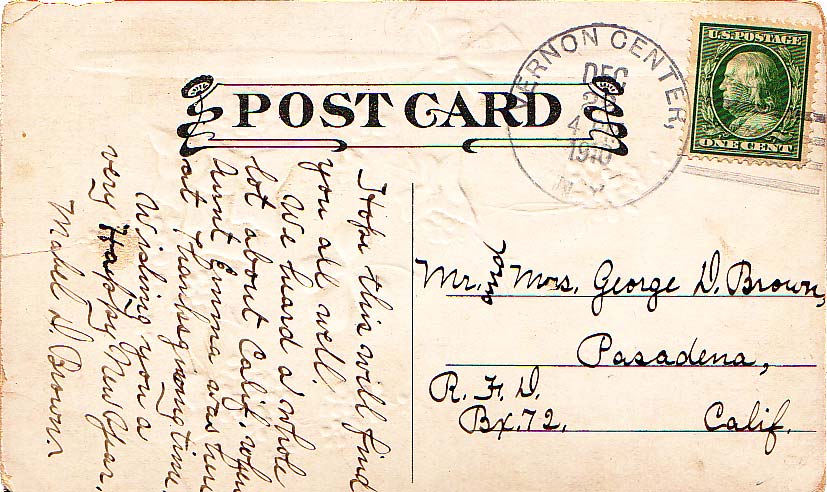 POST CARD
VERNON CENTER,
DEC
1910
N.Y.
U.S. POSTAGE
ONE CENT
Hope this will find
you all well.
We heard a whole
lot about Calif. when
Aunt Emma was here
at Thanksgiving time.
Wishing you a
very Happy New Year.
Mabel D. Brown.
Mr. and Mrs. George D. Brown,
Pasadena,
R. F. D.
Bx. 72. Calif.